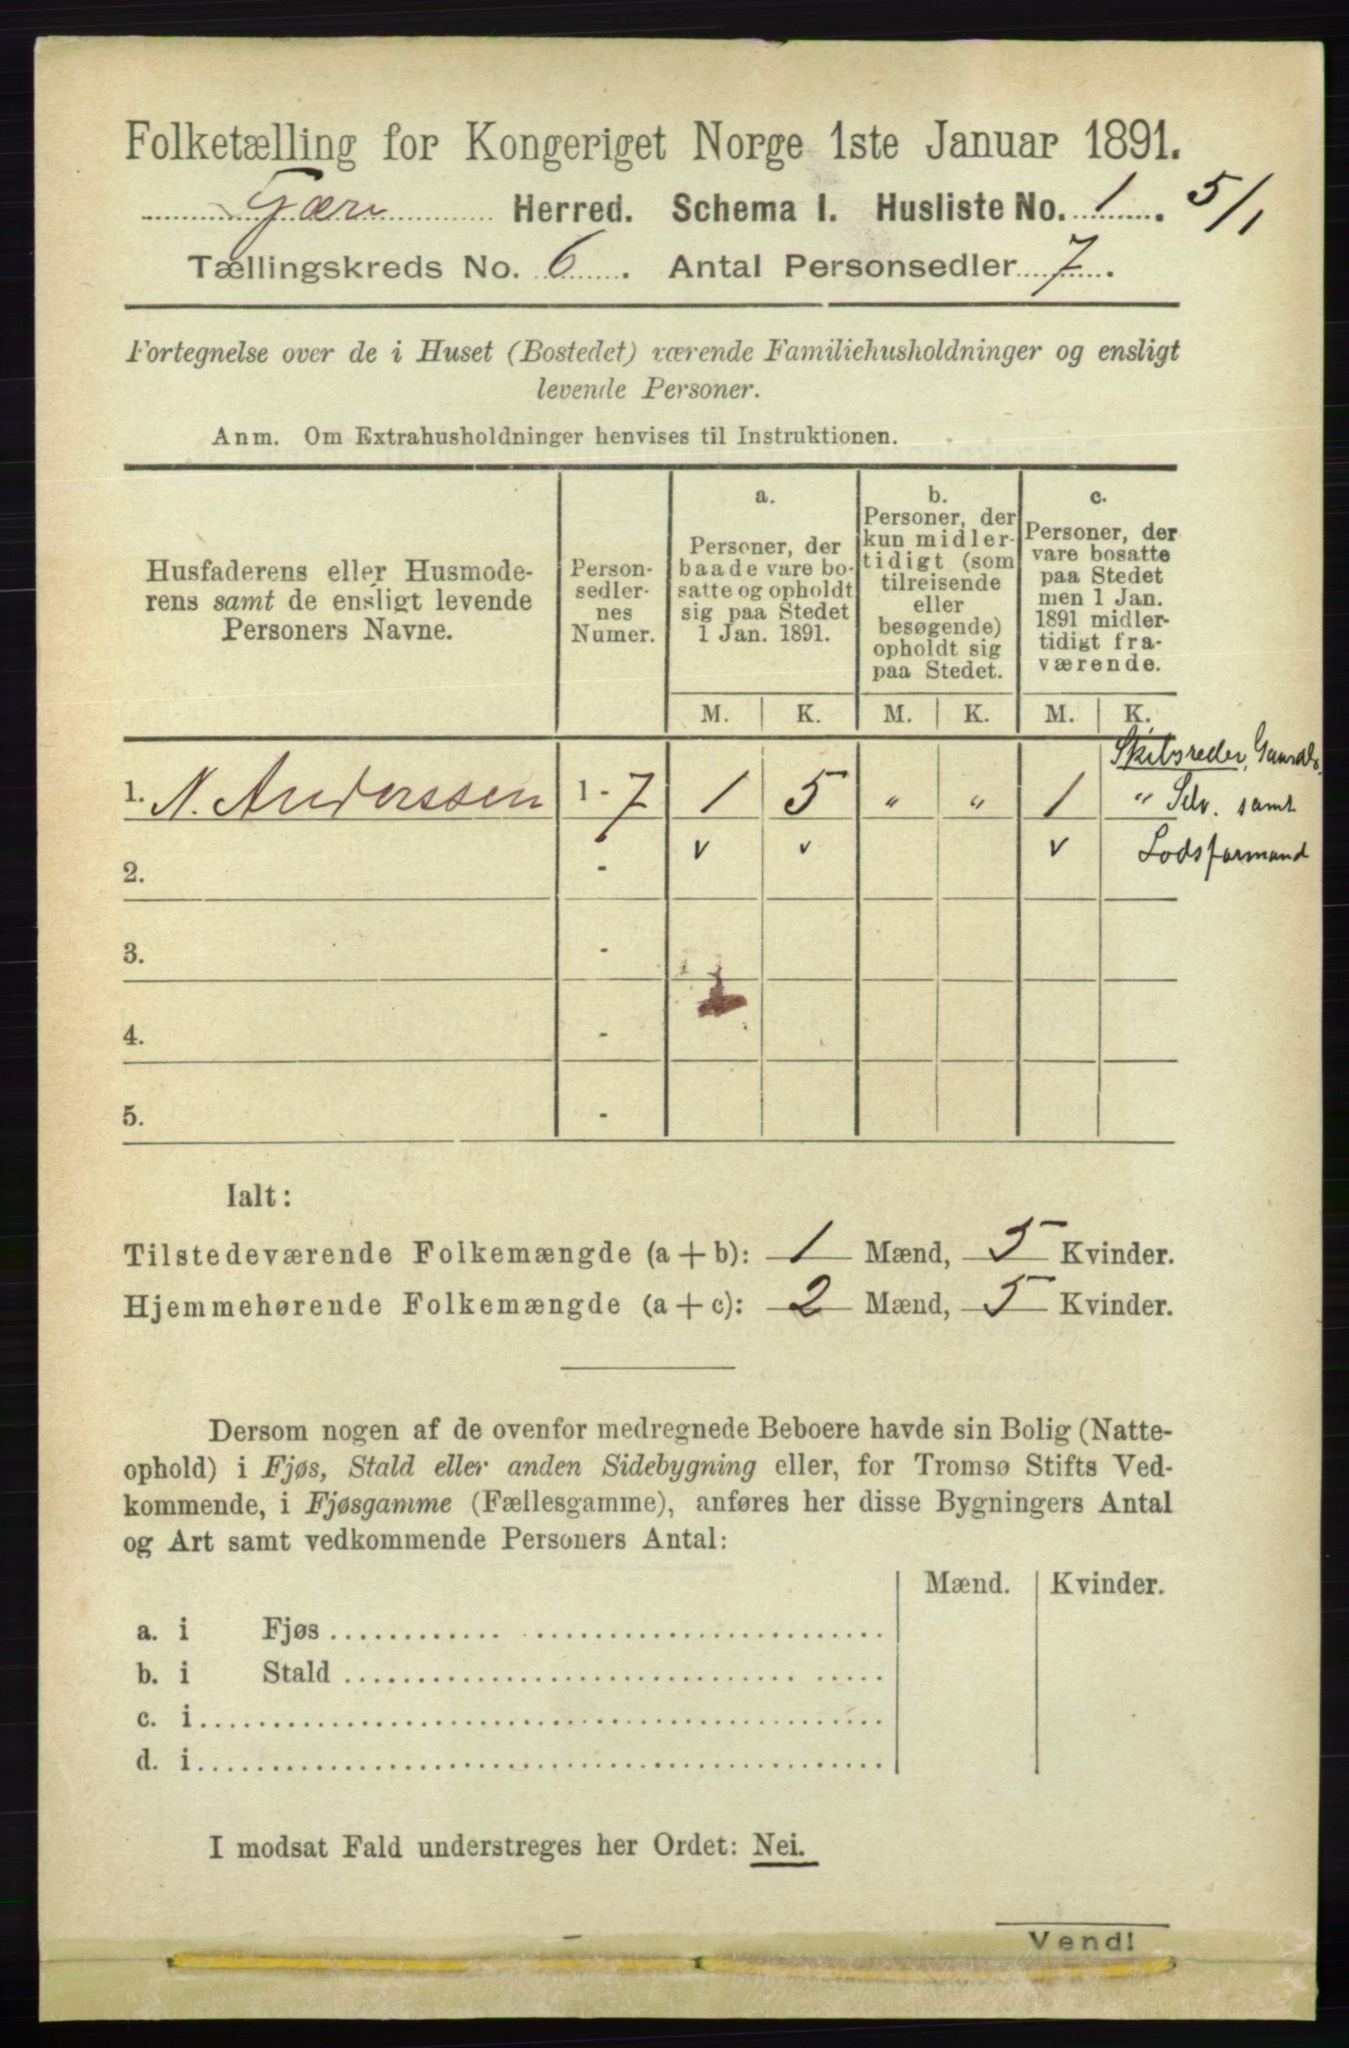 Folketælling for Kongeriget Norge 1ste Januar 1891.
Herred. Schema I. Husliste No. 1. 5/1
Tællingskreds No. 6. Antal Personsedler 7.
Fortegnelse over de i Huset (Bostedet) værende Familiehusholdninger og ensligt
levende Personer.
Anm. Om Extrahusholdninger henvises til Instruktionen.
Husfaderens eller Husmode-
rens samt de ensligt levende
Personers Navne.
Person-
sedler-
nes
Numer.
a.
Personer, der
baade vare bo-
satte og opholdt
sig paa Stedet
1 Jan. 1891.
b.
Personer, der
kun midler-
tidigt (som
tilreisende
eller
besøgende)
opholdt sig
paa Stedet.
c.
Personer, der
vare bosatte
paa Stedet
men 1 Jan.
1891 midler-
tidigt fra-
værende.
M. K. M. K. M. K.
Skibsreder,
1. N. Anderssen 1 - 7 1 5 " " 1 " Selv. samt
2. - v v v Lodsformand
3. -
4. -
5. -
Ialt:
Tilstedeværende Folkemængde (a + b): 1 Mænd, 5 Kvinder.
Hjemmehørende Folkemængde (a + c): 2 Mænd, 5 Kvinder.
Dersom nogen af de ovenfor medregnede Beboere havde sin Bolig (Natte-
ophold) i Fjøs, Stald eller anden Sidebygning eller, for Tromsø Stifts Ved-
kommende, i Fjøsgamme (Fællesgamme), anføres her disse Bygningers Antal
og Art samt vedkommende Personers Antal:
Mænd. Kvinder.
a. i Fjøs
b. i Stald
c. i
d. i
I modsat Fald understreges her Ordet: Nei.
Vend!